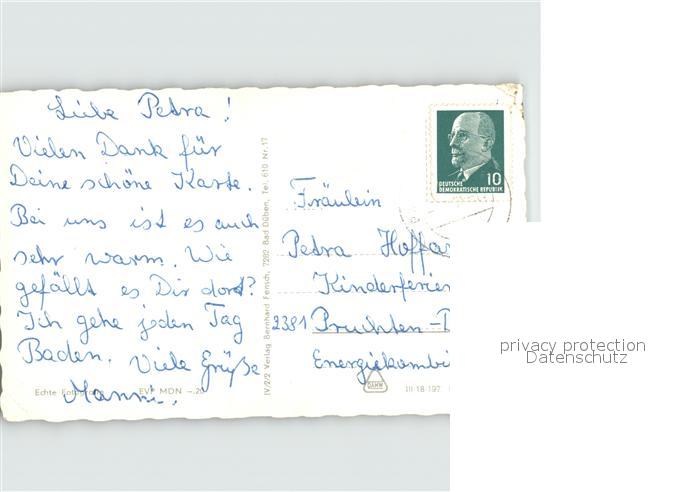 Liebe Petra!
Vielen Dank für
Deine schöne Karte.
Bei uns ist es auch
sehr warm. Wie
gefällt es Dir dort?
Ich gehe jeden Tag
Baden. Viele Grüße
Manni.
Echte Fotografie EVP MDN -.20
IV/2/6 Verlag Bernhard Fensch, 7282 Bad Düben, Tel. 610 Nr. 17
10
DEUTSCHE
DEMOKRATISCHE REPUBLIK
Fräulein
Petra
Kinderferien
2381 Pruchten-
Energiekombi
DAHW
III 18 197
privacy protection
Datenschutz